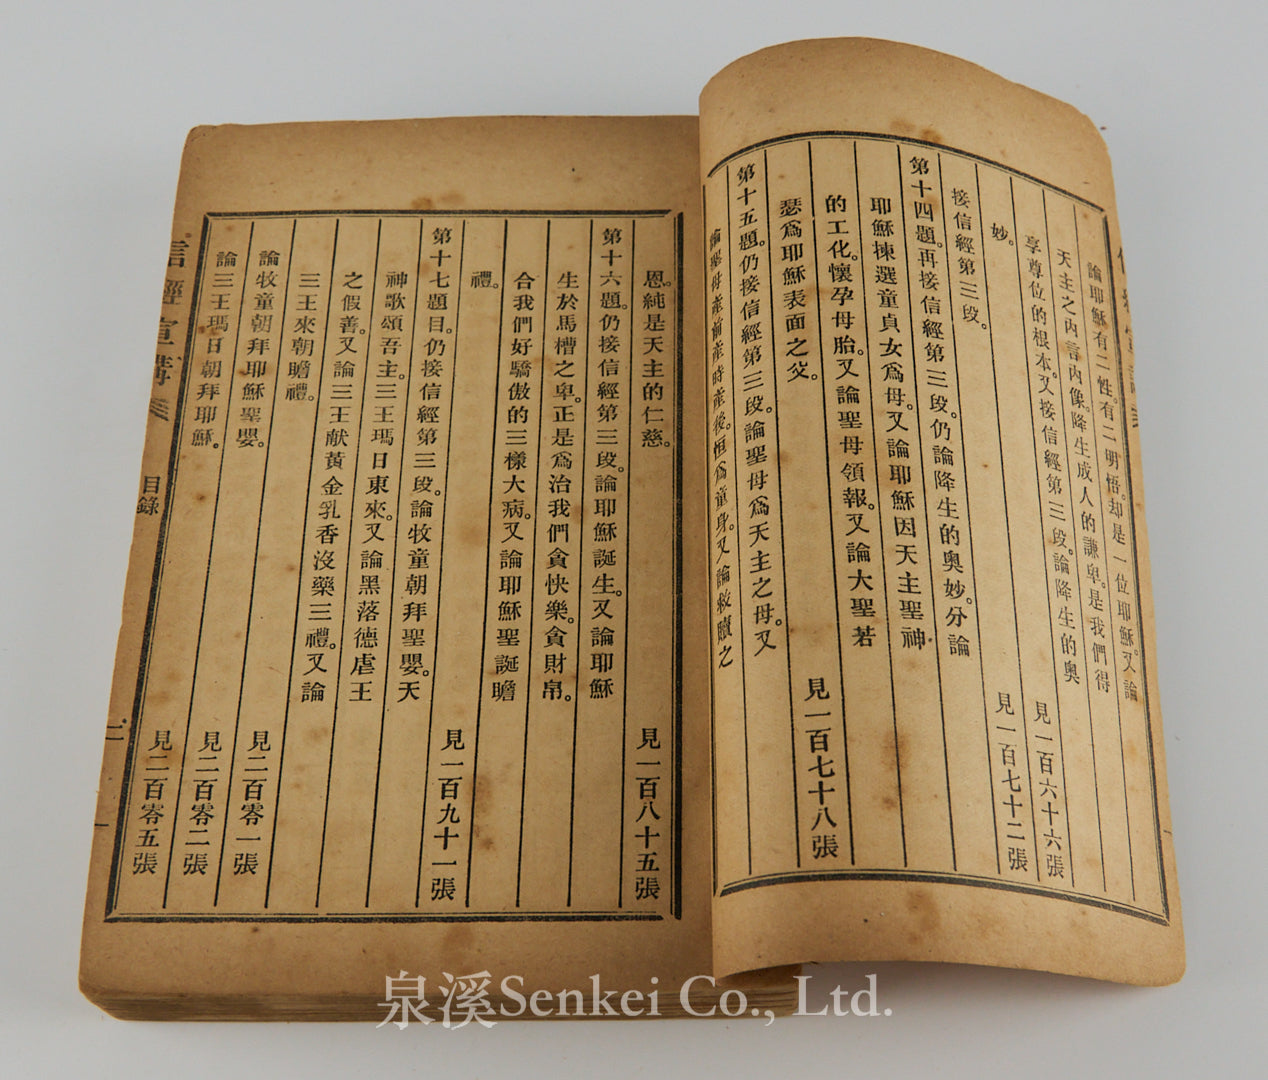 論耶穌有二性。有二明悟。却是一位耶穌。又論
天主之內言內像。降生成人的謙卑。是我們得
享尊位的根本。又接信經第三段。論降生的奧 見一百六十六張
妙。 見一百七十二張
接信經第三段。
第十四題。再接信經第三段。仍論降生的奧妙。分論
耶穌揀選童貞女爲母。又論耶穌因天主聖神
的工化。懷孕母胎。又論聖母領報。又論大聖若
瑟爲耶穌表面之父。 見一百七十八張
第十五題。仍接信經第三段。論聖母爲天主之母。又
論聖母產前產時產後。恒爲童身。又論救贖之
恩。純是天主的仁慈。 見一百八十五張
第十六題。仍接信經第三段。論耶穌誕生。又論耶穌
生於馬槽之卑。正是爲治我們貪快樂。貪財帛。
合我們好驕傲的三樣大病。又論耶穌聖誕瞻
禮。
第十七題目。仍接信經第三段。論牧童朝拜聖嬰。天 見一百九十一張
神歌頌吾主。三王瑪日東來。又論黑落德虐王
之假善。又論三王献黃金乳香沒藥三禮。又論
三王來朝瞻禮。
論牧童朝拜耶穌聖嬰。 見二百零一張
論三王瑪日朝拜耶穌。 見二百零二張
見二百零五張
信經宣講 目錄 二
泉溪Senkei Co., Ltd.